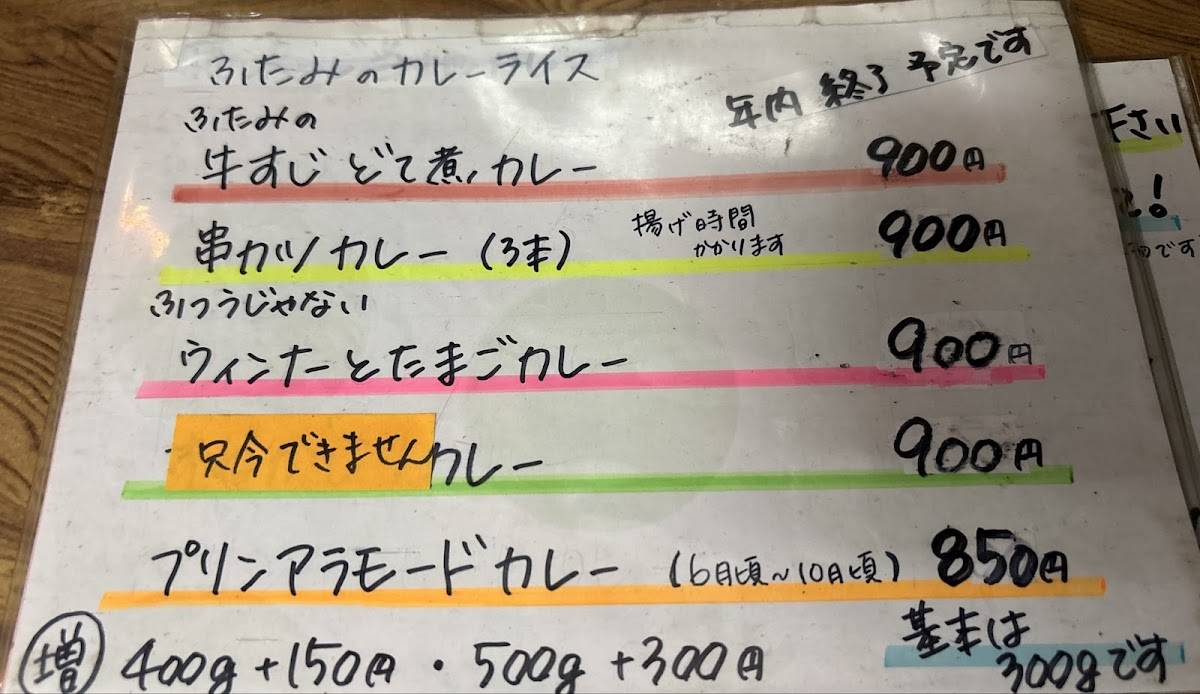 ふたみのカレーライス
年内 終了 予定です
ふたみの
牛すじ どて煮カレー 900円
串カツカレー (3本) 揚げ時間 かかります 900円
ふつうじゃない
ウィンナーとたまごカレー 900円
只今できません カレー 900円
プリンアラモードカレー (6月頃〜10月頃) 850円
増 400g+150円・500g+300円
基本は
300gです
下さい
!
です